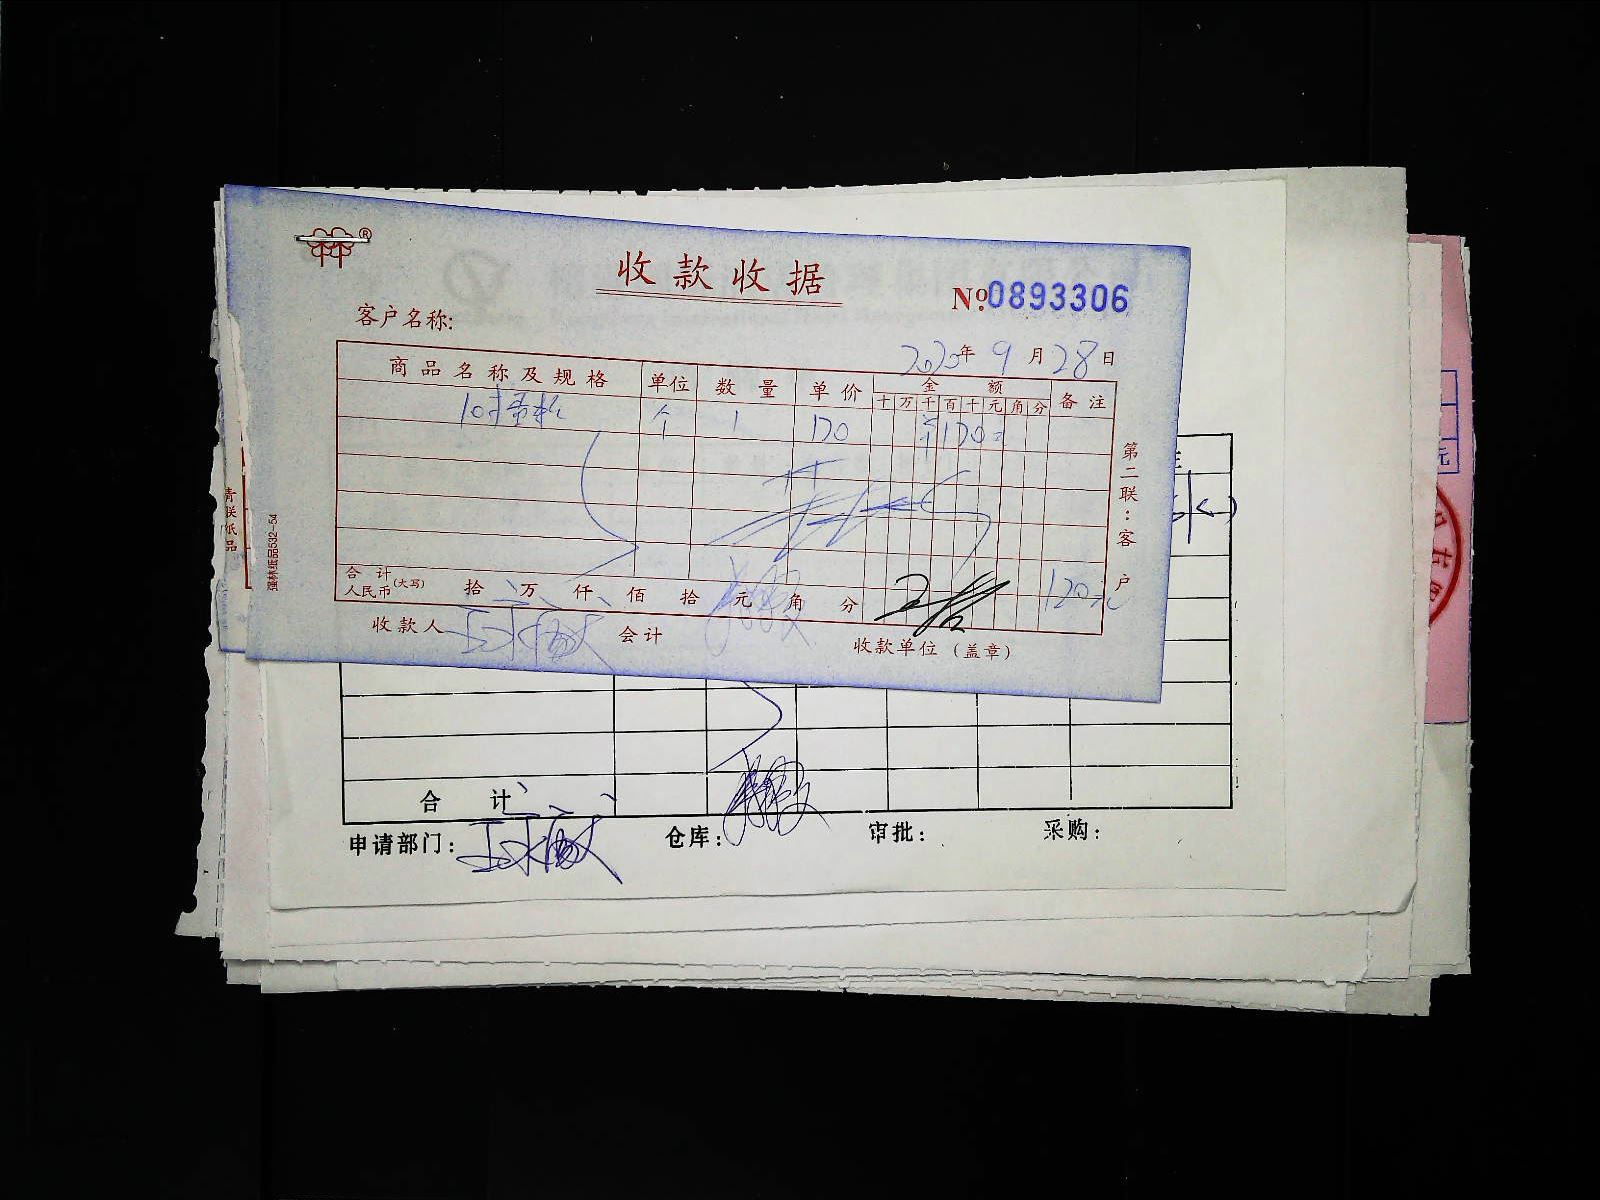 收款收据
№:0893306
客户名称:
2020年9月28日
商品名称及规格 单位 数量 单价 金额 备注
十 万 千 百 十 元 角 分
10寸蛋糕 个 1 120 120
第二联:客户
合计
人民币(大写) 拾 万 仟 佰 拾 元 角 分 120元
收款人 会计 收款单位(盖章)
强林纸品532-54
青联纸品
元
合计
申请部门: 仓库: 审批: 采购: